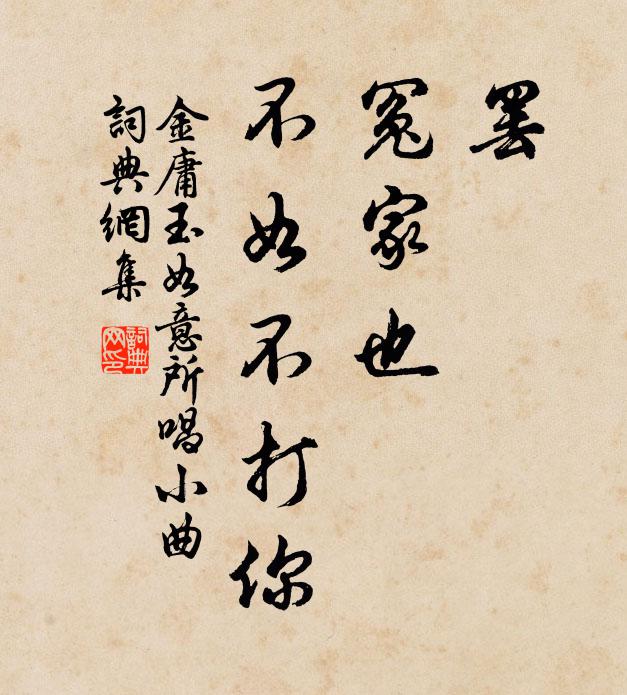 罢
冤家也
不如不打你
金庸玉如意所唱小曲
詞典網集
詞典网印